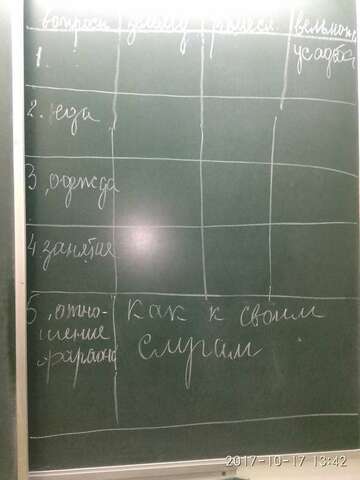 вопросы
1.
усадьба
2. еда
3, одежда
4 занятие
5, отно- как к своим
шение слугам
фараона
2017-10-17 13:42